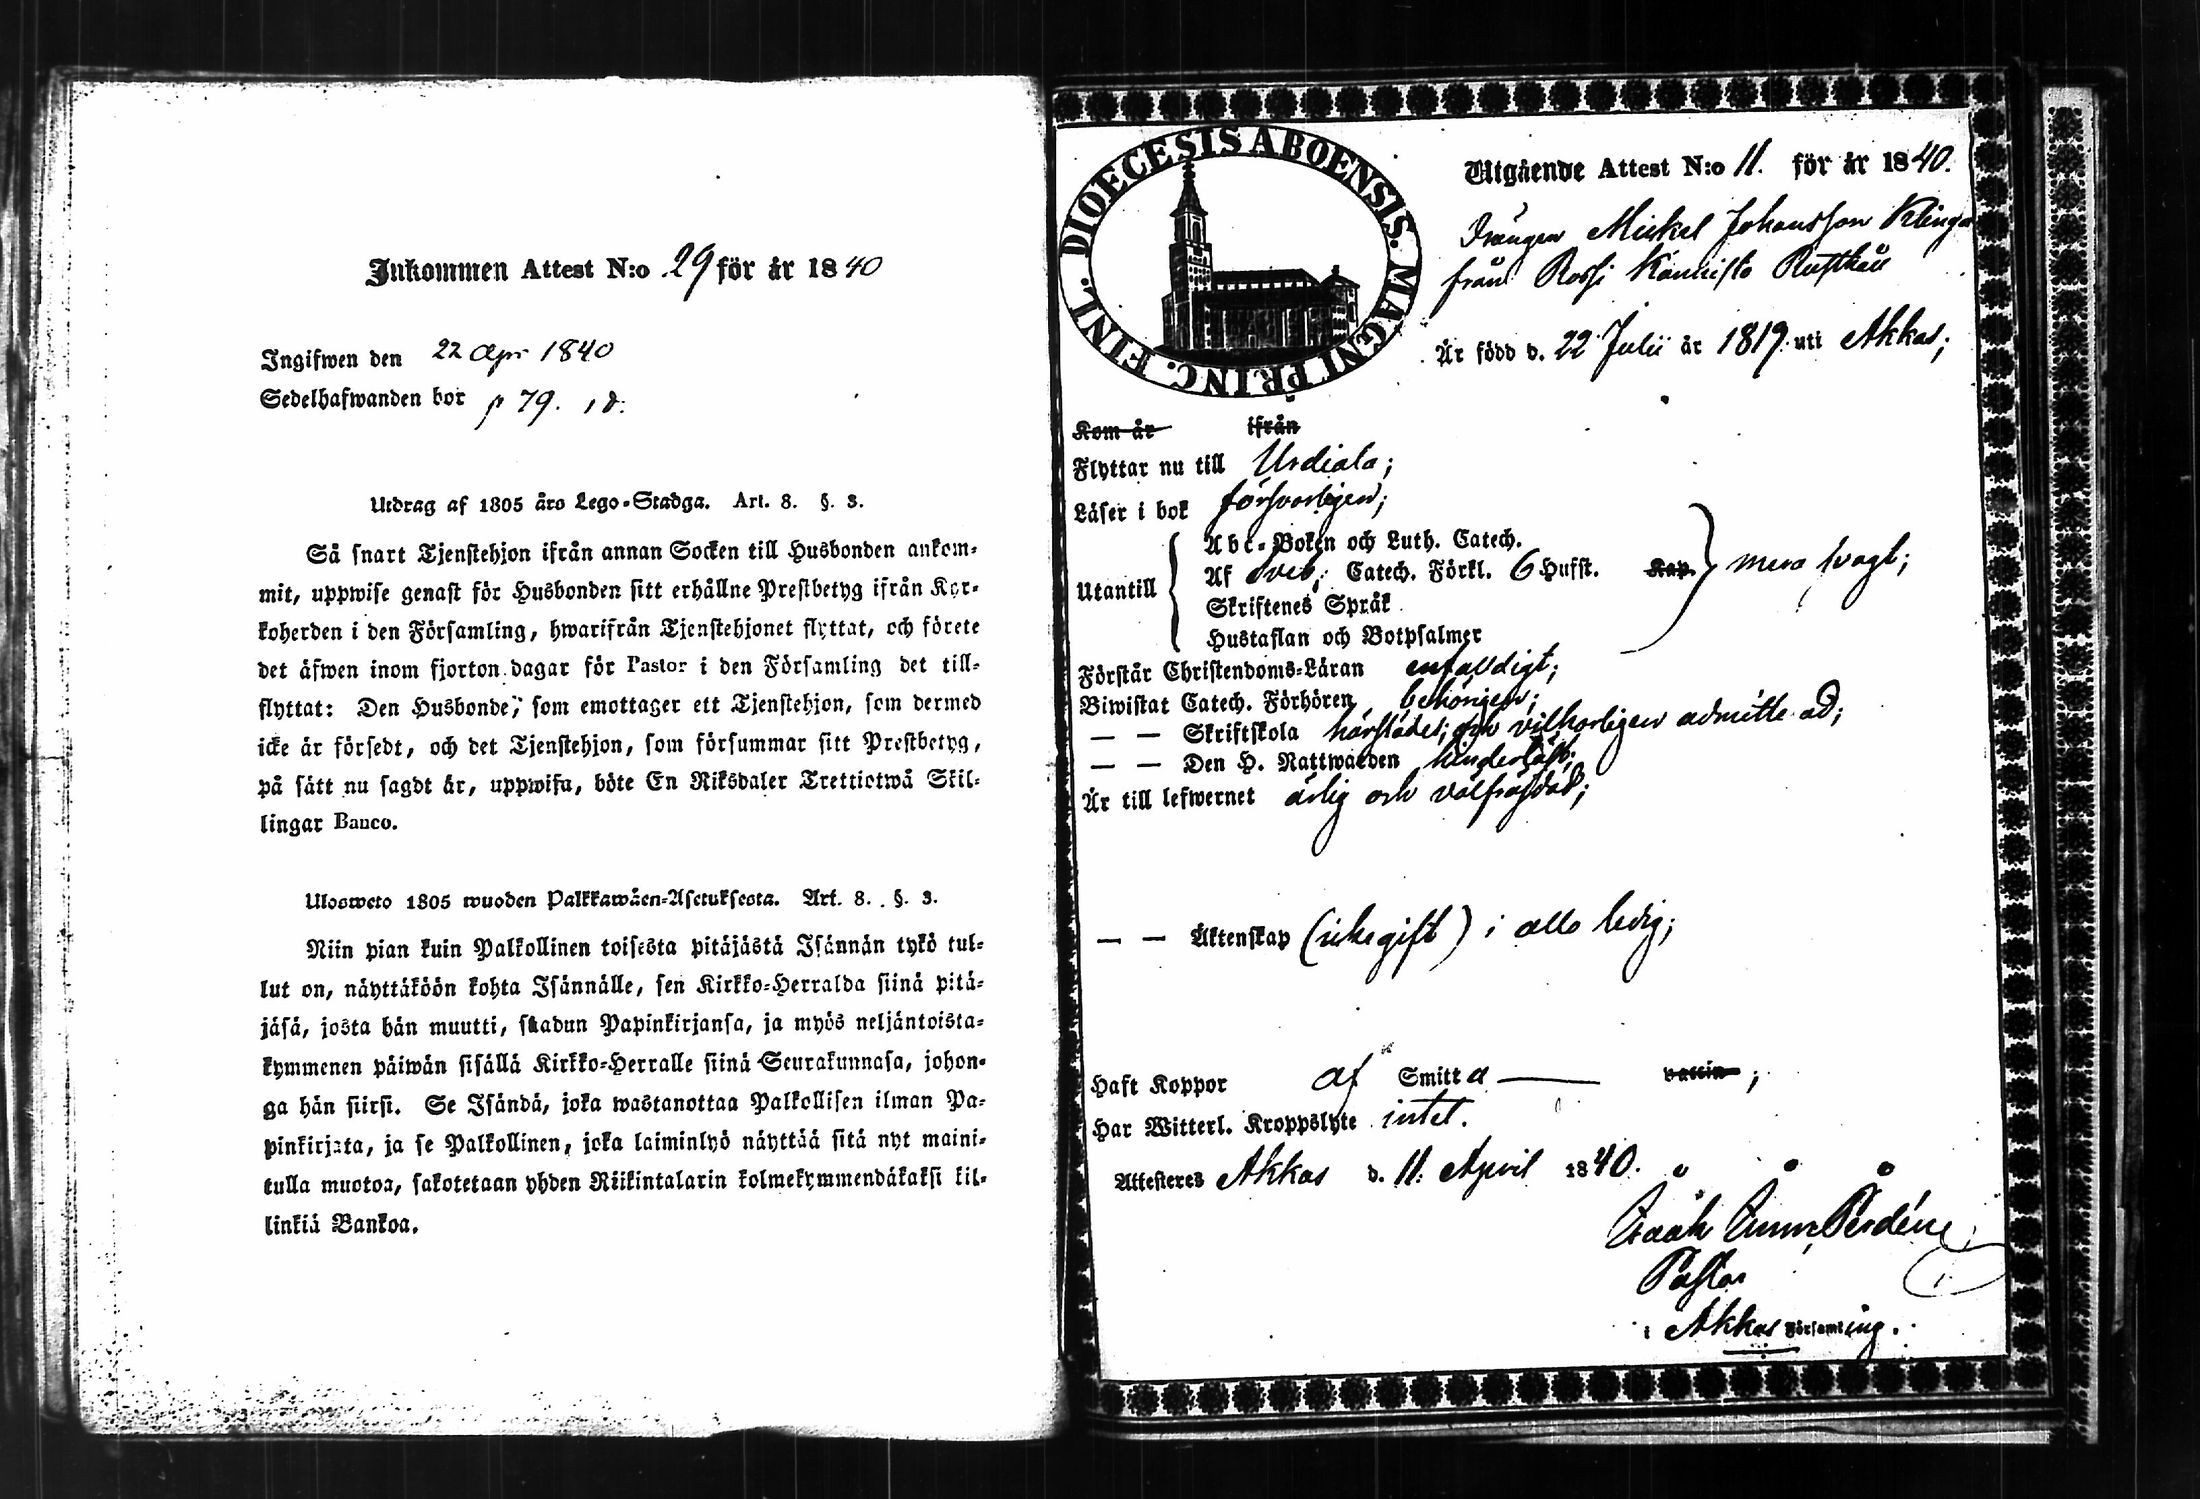 Inkommen Attest N:o 29 för år 1840
Ingifwen den 22 Apr 1840
Sedelhafwanden bor p 79.
Utdrag af 1805 åro Lego-Stadga. Art. 8. §. 3.
Så snart Tjenstehjon ifrån annan Socken till Husbonden ankom-
mit, uppwise genast för Husbonden sitt erhållne Prestbetyg ifrån Kyr-
koherden i den Församling, hwarifrån Tjenstehjonet flyttat, och förete
det äfwen inom fjorton dagar för Pastor i den Församling det till-
flyttat: Den Husbonde, som emottager ett Tjenstehjon, som dermed
icke är försedt, och det Tjenstehjon, som försummar sitt Prestbetyg,
på sätt nu sagdt är, uppwisa, böte En Riksdaler Trettiotwå Skil-
lingar Banco.
Ulosweto 1805 wuoden Palkkawäen-Asetuksesta. Art. 8. §. 3.
Niin pian kuin Palkollinen toisesta pitäjästä Isännän tykö tul-
lut on, näyttäköön kohta Isännälle, sen Kirkko-Herralda siinä pitä-
jäsä, josta hän muutti, saadun Papinkirjansa, ja myös neljäntoista-
kymmenen päiwän sisällä Kirkko-Herralle siinä Seurakunnasa, johon-
ga hän siirsi. Se Isändä, joka wastanottaa Palkollisen ilman Pa-
pinkirjata, ja se Palkollinen, joka laiminlyö näyttää sitä nyt maini-
tulla muotoa, sakotetaan yhden Riikintalarin kolmekymmendäkaksi kil-
linkiä Bankoa.
DIOECESIS ABOENSIS. MAGNI PRINC. FINL.
Utgående Attest N:o 11. för år 1840.
Drängen Mickel Johansson Klinga
från Rossi Kannisto Rusthåll
Är född d. 22 Julii år 1819 uti Akkas;
Kom år ifrån
Flyttar nu till Urdiala;
Läser i bok försvarligen;
Abc-Boken och Luth. Catech.
Utantill Af Sveb. Catech. Förkl. 6 Hufst. Kap. mera svagt;
Skriftenes Språk
Hustaflan och Botpsalmer
Förstår Christendoms-Läran enfaldigt;
Biwistat Catech. Förhören behörigen;
— — Skriftskola härstädes; och vilkorligen admitterad;
— — Den H. Nattwarden hinderlöst;
Är till lefwernet ärlig och välfräjdad;
— — Äktenskap (icke gift) i allo ledig;
Haft Koppor af Smitta — vaccin;
Har Witterl. Kroppslyte intet.
Attesteras Akkas d. 11. April 1840.
Pastor
i Akkas Församling.